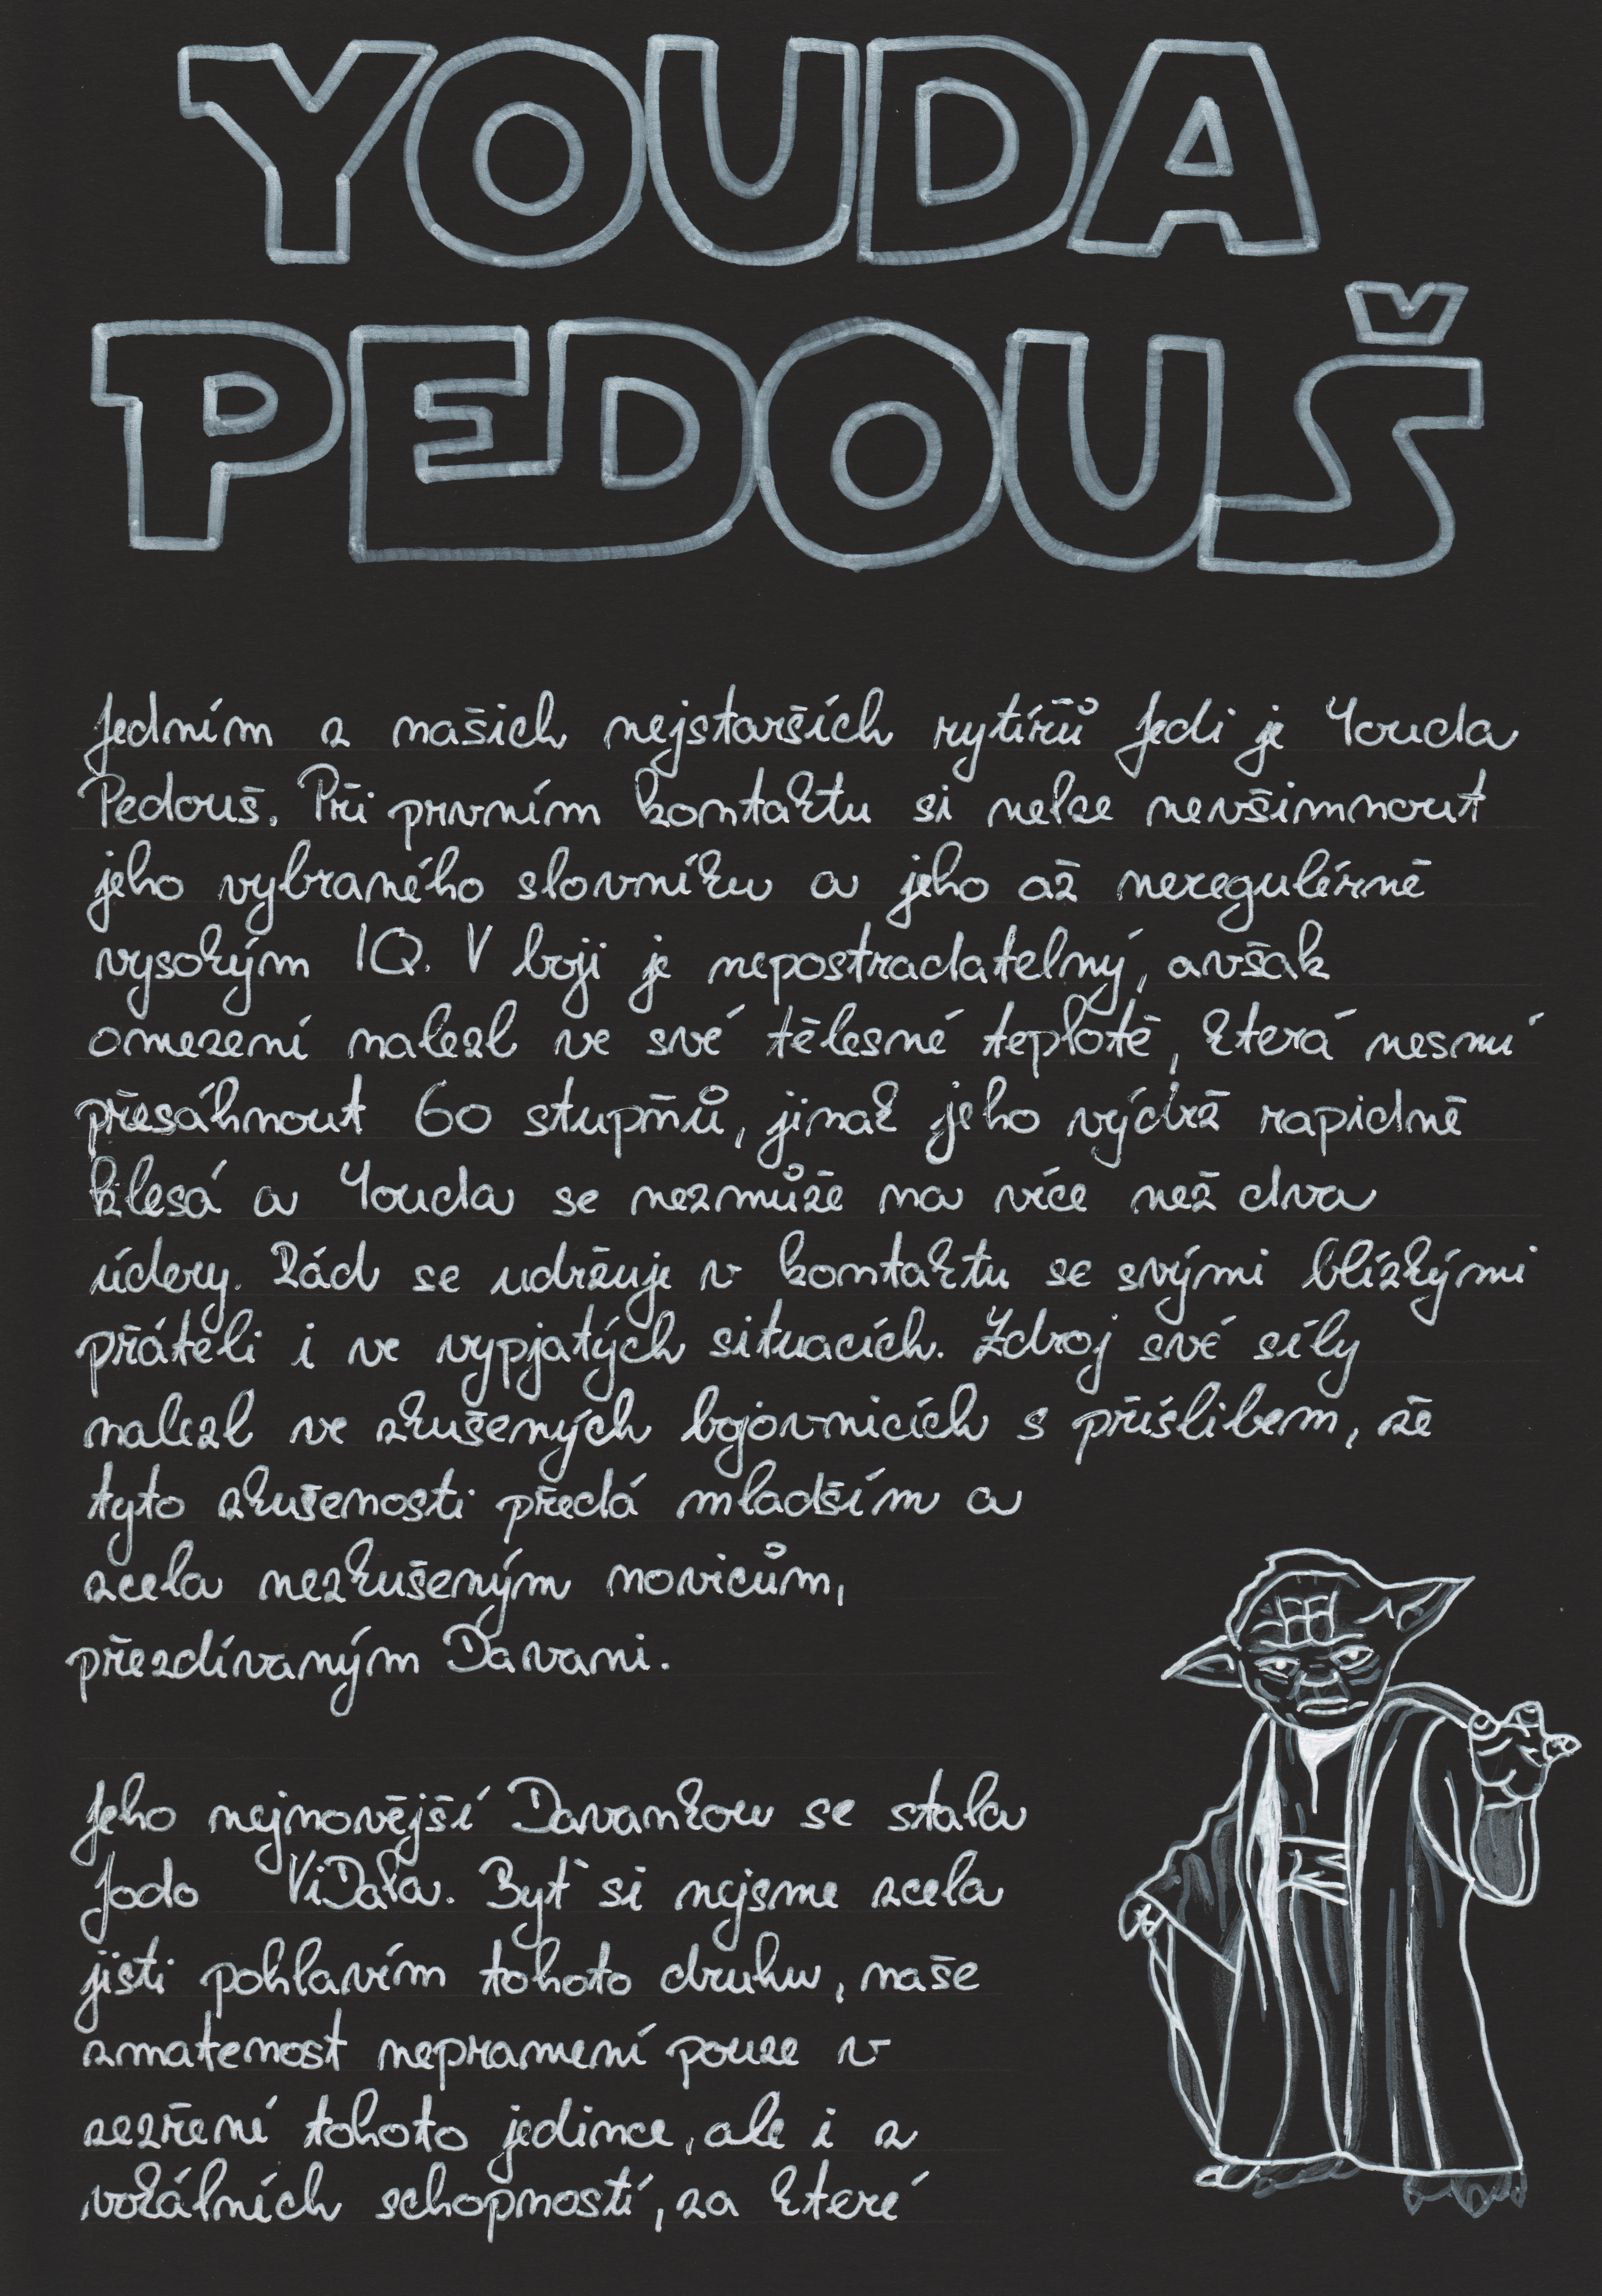 YOUDA
PEDOUŠ
Jedním z našich nejstarších rytířů Jedi je Youda
Pedouš. Při prvním kontaktu si nelze nevšimnout
jeho vybraného slovníku a jeho až neregulérně
vysokým IQ. V boji je nepostradatelný, avšak
omezení nalezl ve své tělesné teplotě, která nesmí
přesáhnout 60 stupňů, jinak jeho výdrž rapidně
klesá a Youda se nezmůže na více než dva
údery. Rád se udržuje v kontaktu se svými blízkými
přáteli i ve vypjatých situacích. Zdroj své síly
nalezl ve zkušených bojovnicích s příslibem, že
tyto zkušenosti předá mladším a
zcela nezkušeným novicům,
přezdívaným Davani.
Jeho nejnovější Davankou se stala
Jodo ViDala. Byť si nejsme zcela
jisti pohlavím tohoto druhu, naše
zmatenost nepramení pouze v
zezření tohoto jedince, ale i z
vokálních schopností, za které